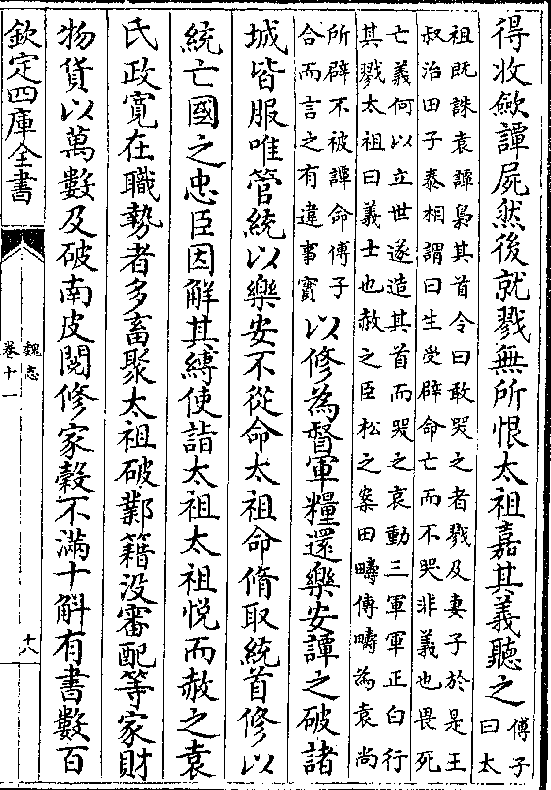 得收歛譚屍然後就戮無所恨太祖嘉其義聽之
傅子
曰太
祖既誅袁譚梟其首令曰敢哭之者戮及妻子於是王
叔治田子泰相謂曰生受辟命亡而不哭非義也畏死
亡義何以立世遂造其首而哭之哀動三軍軍正白行
其戮太祖曰義士也赦之臣松之案田疇傳疇為袁尚
所辟不被譚命傅子
合而言之有違事實
以修為督軍糧還樂安譚之破諸
城皆服唯管統以樂安不從命太祖命脩取統首修以
統亡國之忠臣因解其縛使詣太祖太祖悦而赦之袁
氏政寛在職勢者多畜聚太祖破鄴籍没審配等家財
物貨以萬數及破南皮閲修家穀不滿十斛有書數百
欽定四庫全書
魏志
卷十一
十八